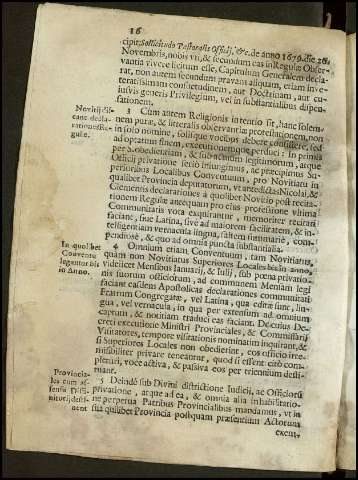 16
cipit: Sollicitudo Pastoralis Officij, &c. de anno 1679. die 20.
Novembris, nobis vti, & secundum eas in Regulæ Obser-
vantia vivere licitum esse, Capitulum Generalem decla-
rat, non autem secundum pravam aliquam, etiam inve-
teratissimam consuetudinem, aut Doctrinam, aut cu-
iusvis generis Privilegium, vel in substantialibus dispen-
sationem.
Novitij-si-
cant decla-
rationes Re-
gulæ.
3 Cum autem Religionis intentio sit, hanc solem-
nem puræ, & litteralis observantiæ protestationem, non
in solo nomine, solisque vocibus debere consistere, sed
ad optatum finem, executionemque perduci: In primis
per S. obedientiam, & sub nullum legitimorum, atque
Officij privatione ferio iniungimus, ac præcipimus Su-
perioribus Localibus Conventuum, pro Novitiatu in
qualibet Provincia deputatorum, vt antedictas Nicolai, &
Clementis declarationes à quolibet Novitio post recita-
tionem Regulæ antequam pro eius professione vltima
Communitatis vota exquirantur, memoriter recitari
faciant, sive Latina, sivè ad maiorem facilitatem, & in-
telligentiam vernacula lingua, saltem summariè, com-
pendiosè, & quo ad omnia puncta substantialia.
In quolibet
Conventu
legantur bis
in Anno.
4 Omnium etiam Conventuum, tam Novitiatus
quam non Novitiatus Superiores Locales bis in anno,
videlicet Mensibus Ianuarij, & Iulij, sub pœna privatio-
nis suorum officiorum, ad communem Mensam legi
faciant easdem Apostolicas declarationes communitati
Fratrum Congregatæ, vel Latina, qua editæ sunt, lin-
gua, vel vernacula, in qua per extensum ad omnium
captum, & notitiam traduci eas faciant. De cuius De-
creti executione Ministri Provinciales, & Commissarij
Visitatores, tempore visitationis nominatim inquirant, &
si Superiores Locales non obedierint, eos officio irre-
missibiliter privare teneantur, quod si essent cito com-
pleturi, voce activa, & passiva eos per triennium desti-
tuant.
Provincia-
les cum as-
sensu Diffi-
nitorij, desti-
nent
5 Deindè sub Divini districtione Iudicij, ac Officiorū
privatione, atque ad ea, & omnia alia inhabilitatio-
ne perpetua Patribus Provincialibus mandamus, vt in
sua quilibet Provincia postquam præsentium Actorum
exem-